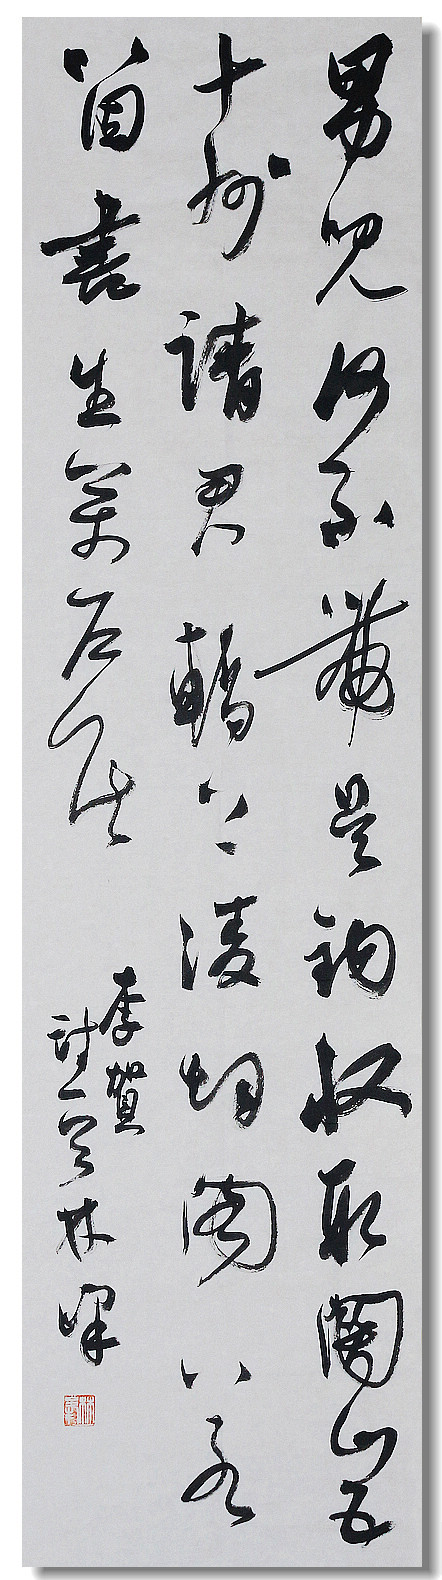 男兒何不帶吳鈎收取關山五
十州請君暫上凌烟閣若
箇書生萬戶侯
李賀
詩一首林